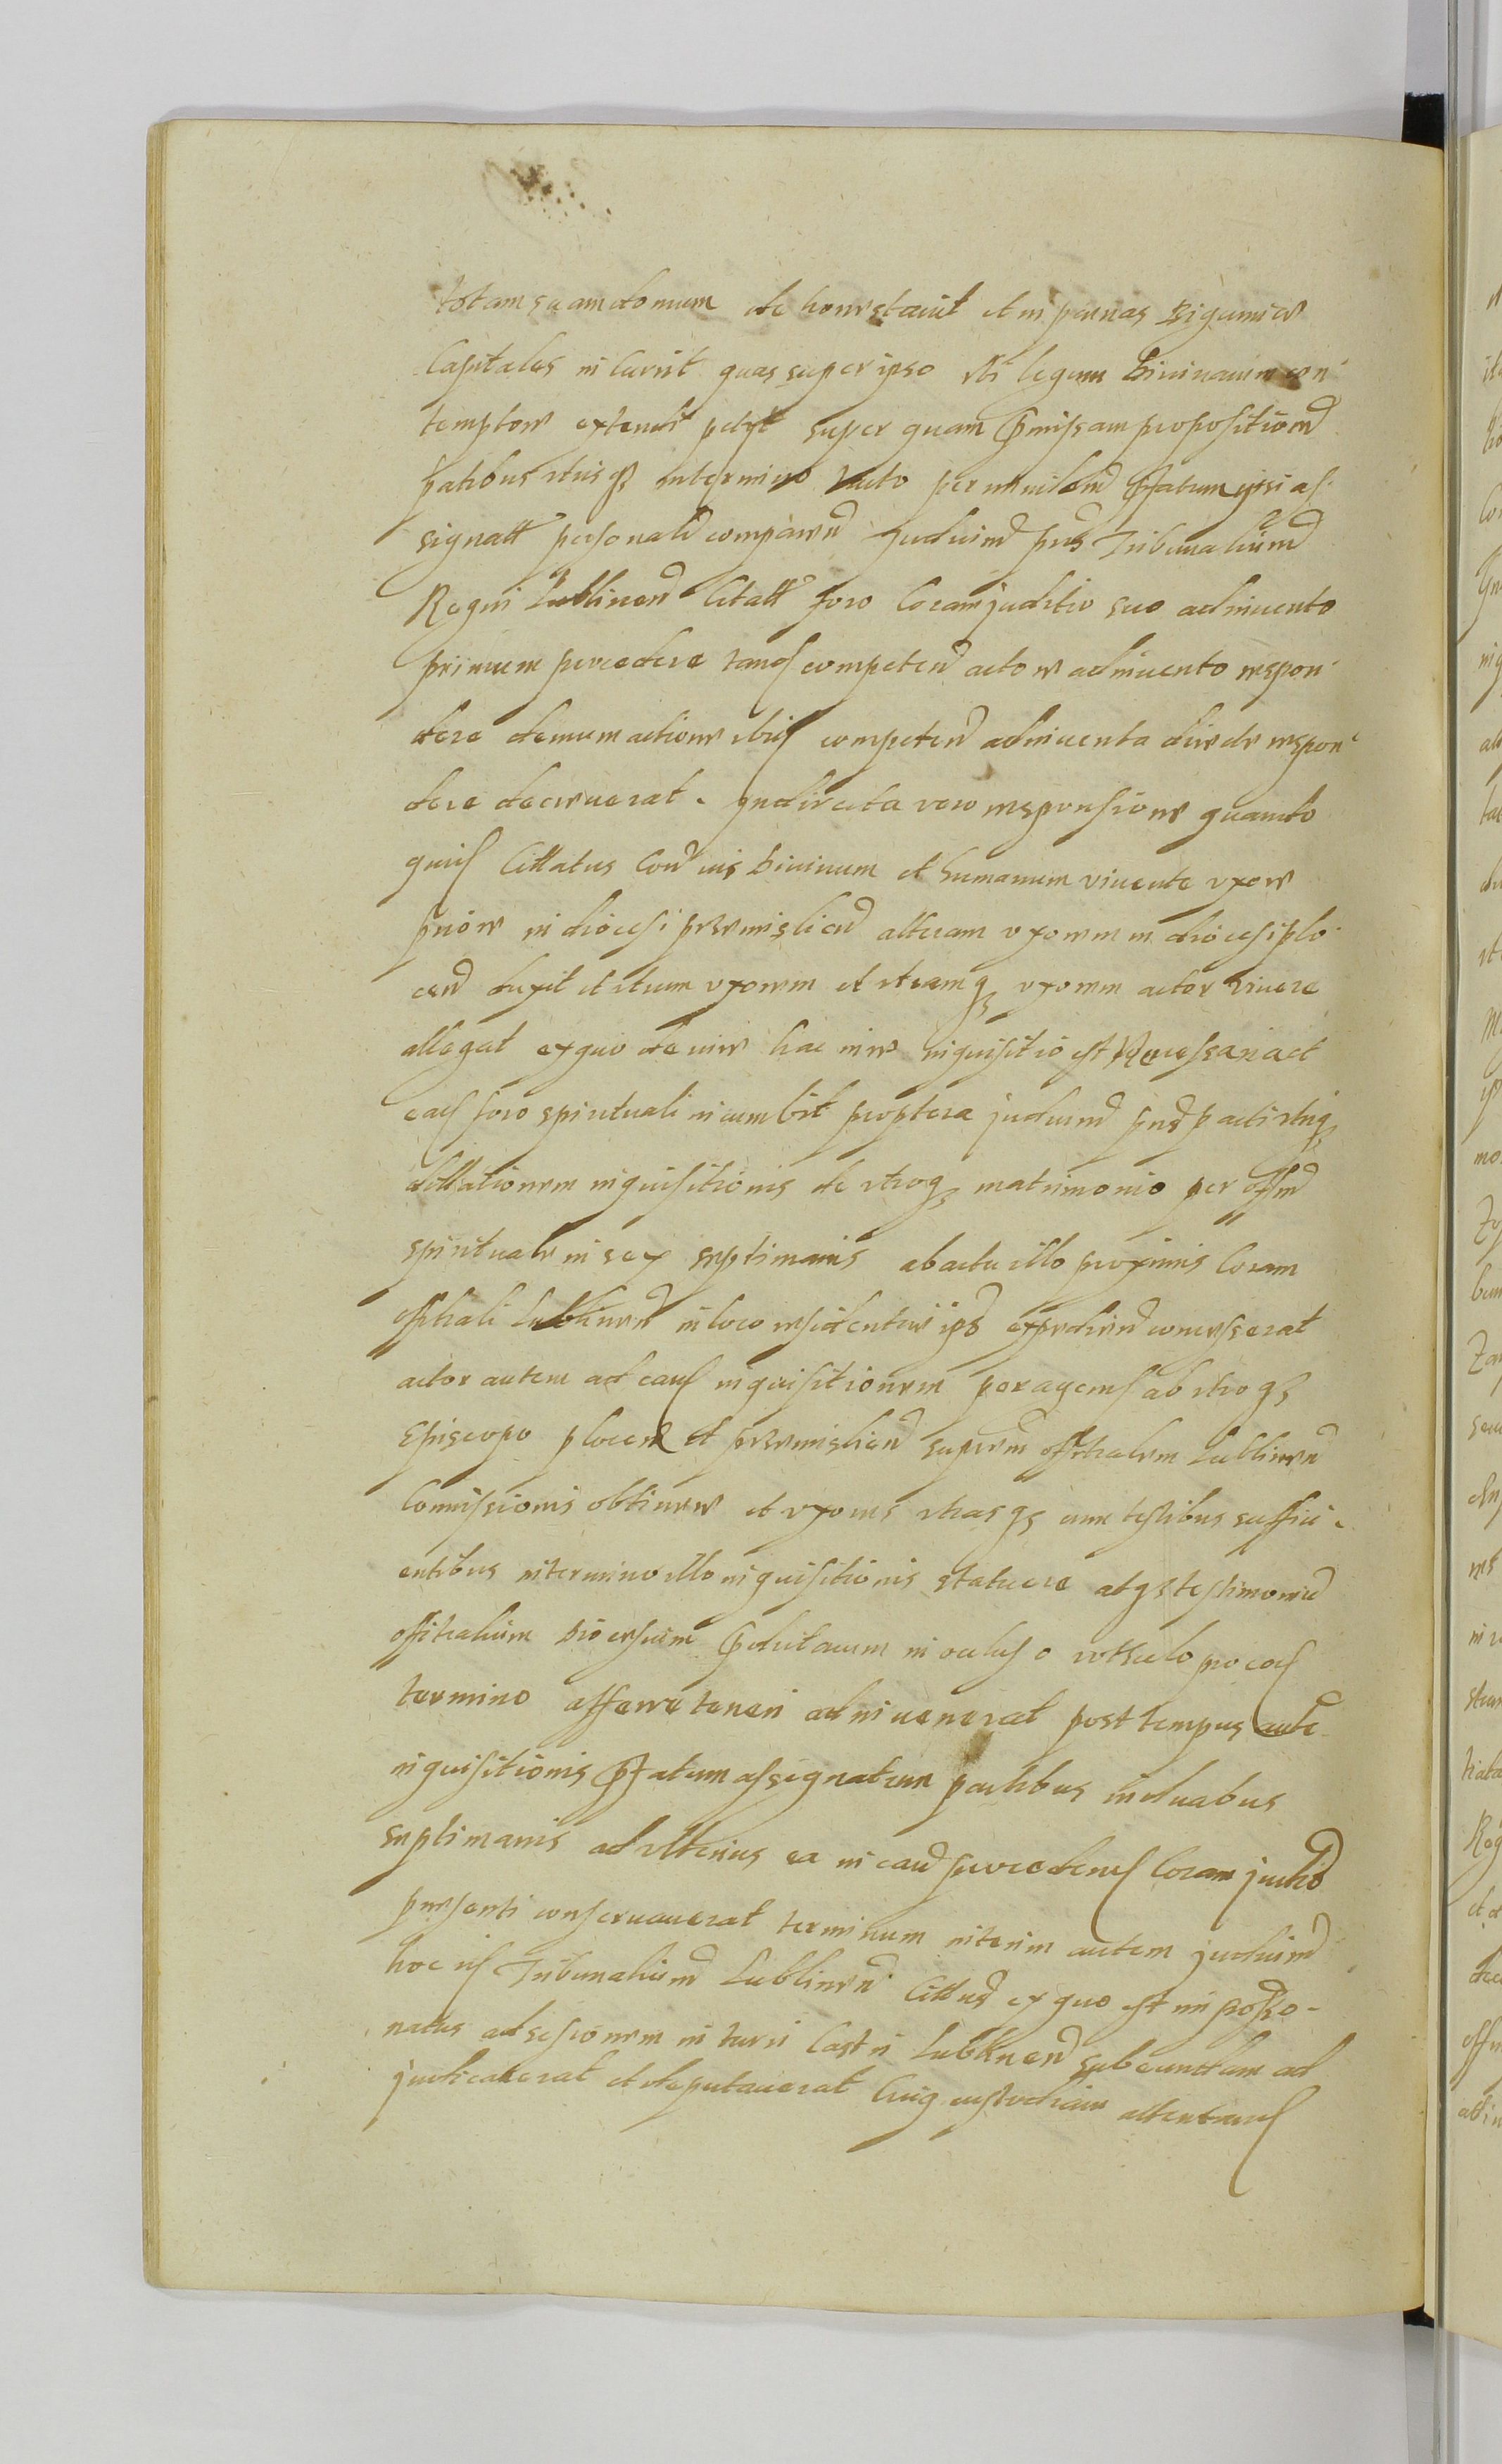 totam suam domum dehonestauit et in paenas Bigamiae
Capitales incurrit quas super ipso uti legum Diuinarum con-
temptore extendi petyt super quam pmissam propositiond
partibus utrisqs in termino tacto per ministrd pfatum ipsi as-
signatt personalr comparend Judicimd pns Tribunaliumd
Regni Lublinend Citatt foro Coram juditio suo adinuento
primum procedere tandf competend actore adinuento respon-
dere demum actione ibidf competend adinuenta directe respon-
dere decreuerat. Indirecta vero responsione quando
quidf Cittatus Cond ius Diuinum et humanum viuente vxore
priore in diocesi przemisliend alteram vxorem in diocesi plo-
cend duxit et utram vxorem et utramqs vxorem actor viuere
allegat ex quo de iure hac in re inquisitio est Necessaria et
eadf foro spirituali incumbit proptera judicimd pnsd parti utriqs
dillationem inquisitionis de utroqs matrimonio per offmd
spirituale in sex septimanis ab actu illo proximis Coram
offitiali Lublinend in loco residentiae ipsd expediend concesserat
actor autem ad eandf inquisitionem peragendf ab utroqs
Episcopo plocend et przemisliend supremd offitialem Lublinend
Comissionis obtinere et vxores utrasqs cum testibus suffici-
entibus in termino illo inquisitionis statuere atqs testimonid
offitialium Diocesium pdictarum in oculuso rotulo pro eodf
termino afferre teneri adinuenerat post tempus aute
inquisitionis pfatum assignatum partibus in duabus
septimanis ad ulterius ea in caud procedendf Coram judicid
presenti conseruauerat terminum interim autem judicimd
hoc idf Tribunaliumd Lublinend Citttud ex quo est imposso-
natus ad sessionem in turri Castri Lublinend subeundam ad
judicauerat et deputauerat Cuig custodiam attentandf